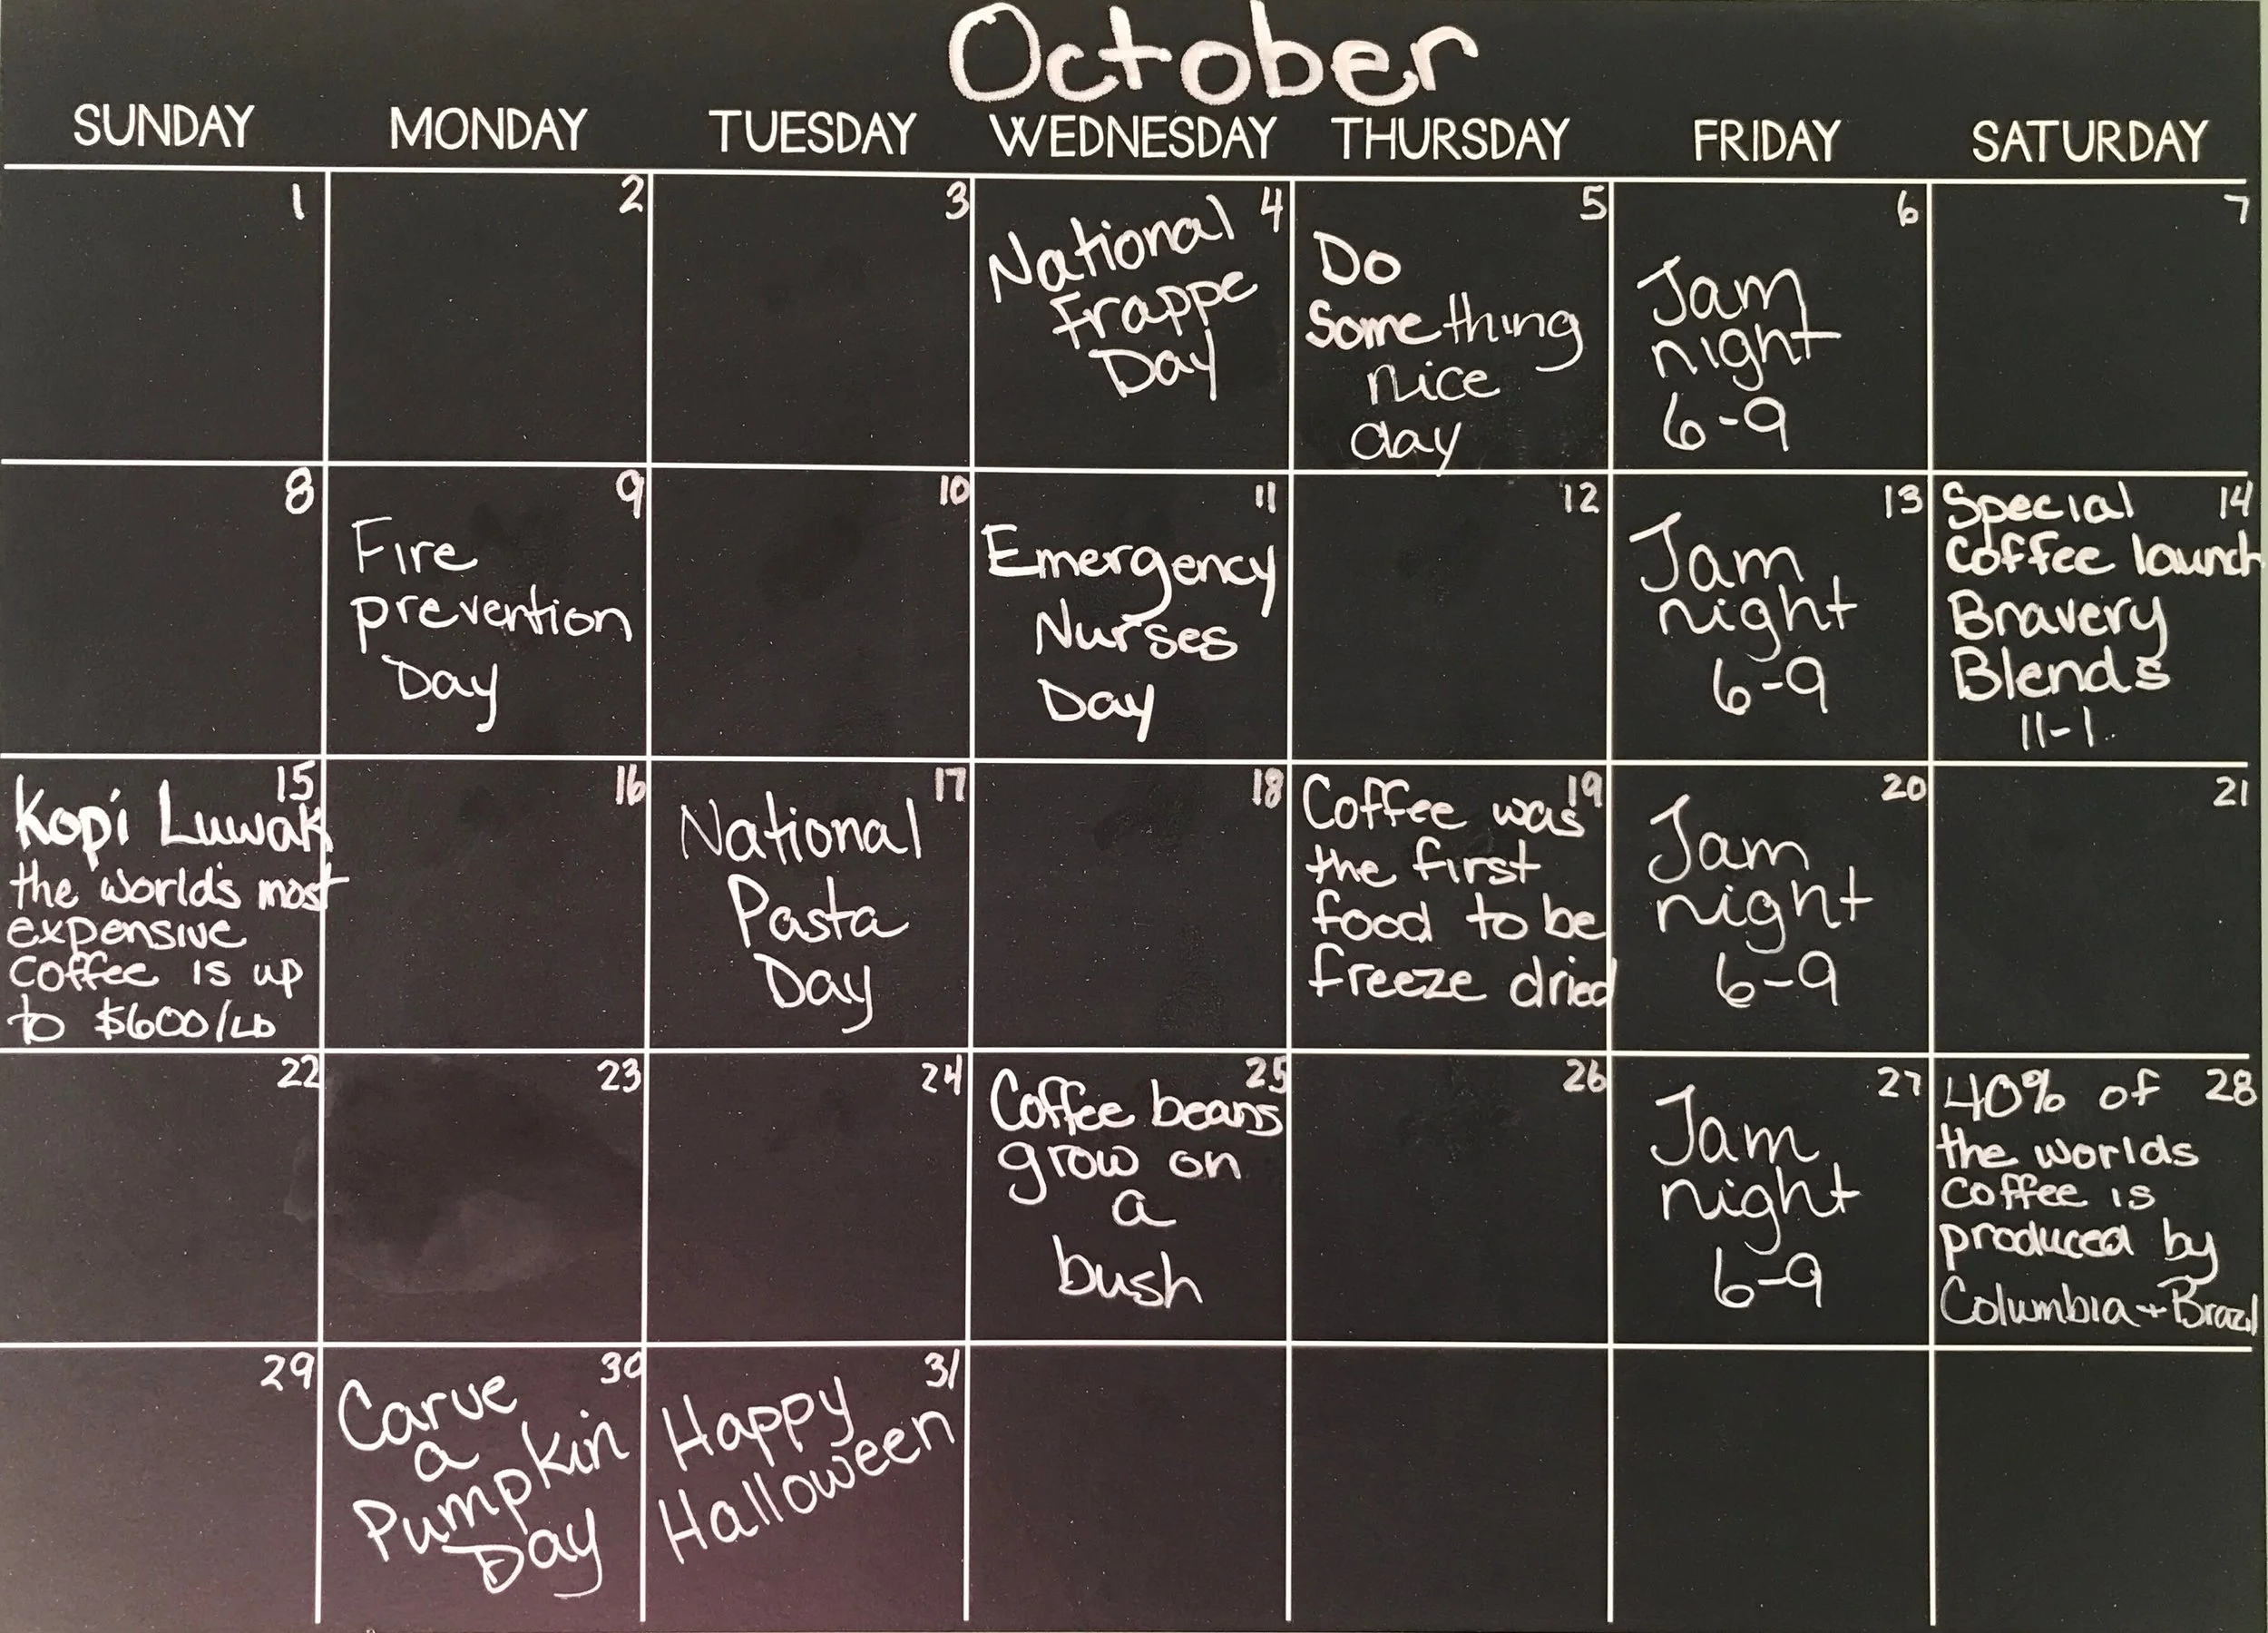 October
SUNDAY MONDAY TUESDAY WEDNESDAY THURSDAY FRIDAY SATURDAY
1
2
3
4
National
Frappe
Day
5
Do
Something
nice
day
6
Jam
night
6-9
7
8
9
Fire
prevention
Day
10
11
Emergency
Nurses
Day
12
13
Jam
night
6-9
14
Special
Coffee launch
Bravery
Blends
11-1
15
Kopi Luwak
the world's most
expensive
coffee is up
to $600/LB
16
17
National
Pasta
Day
18
19
Coffee was
the first
food to be
freeze dried
20
Jam
night
6-9
21
22
23
24
25
Coffee beans
grow on
a
bush
26
27
Jam
night
6-9
28
40% of
the worlds
coffee is
produced by
Columbia + Brazil
29
30
Carve
a
Pumpkin
Day
31
Happy
Halloween